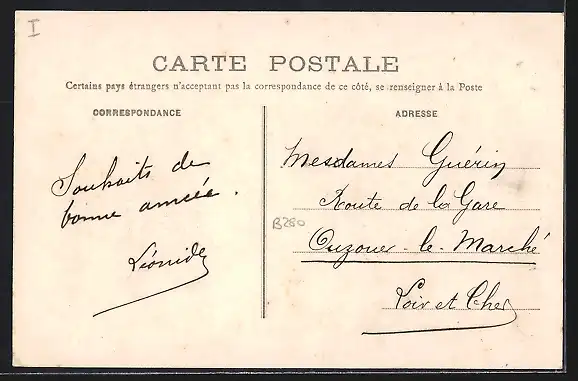 I
CARTE POSTALE
Certains pays étrangers n'acceptant pas la correspondance de ce côté, se renseigner à la Poste
CORRESPONDANCE
Souhaits de
bonne année.
Léonide
ADRESSE
Mesdames Guérin
Route de la Gare
B280
Ouzouer-le-Marché
Loir et Cher